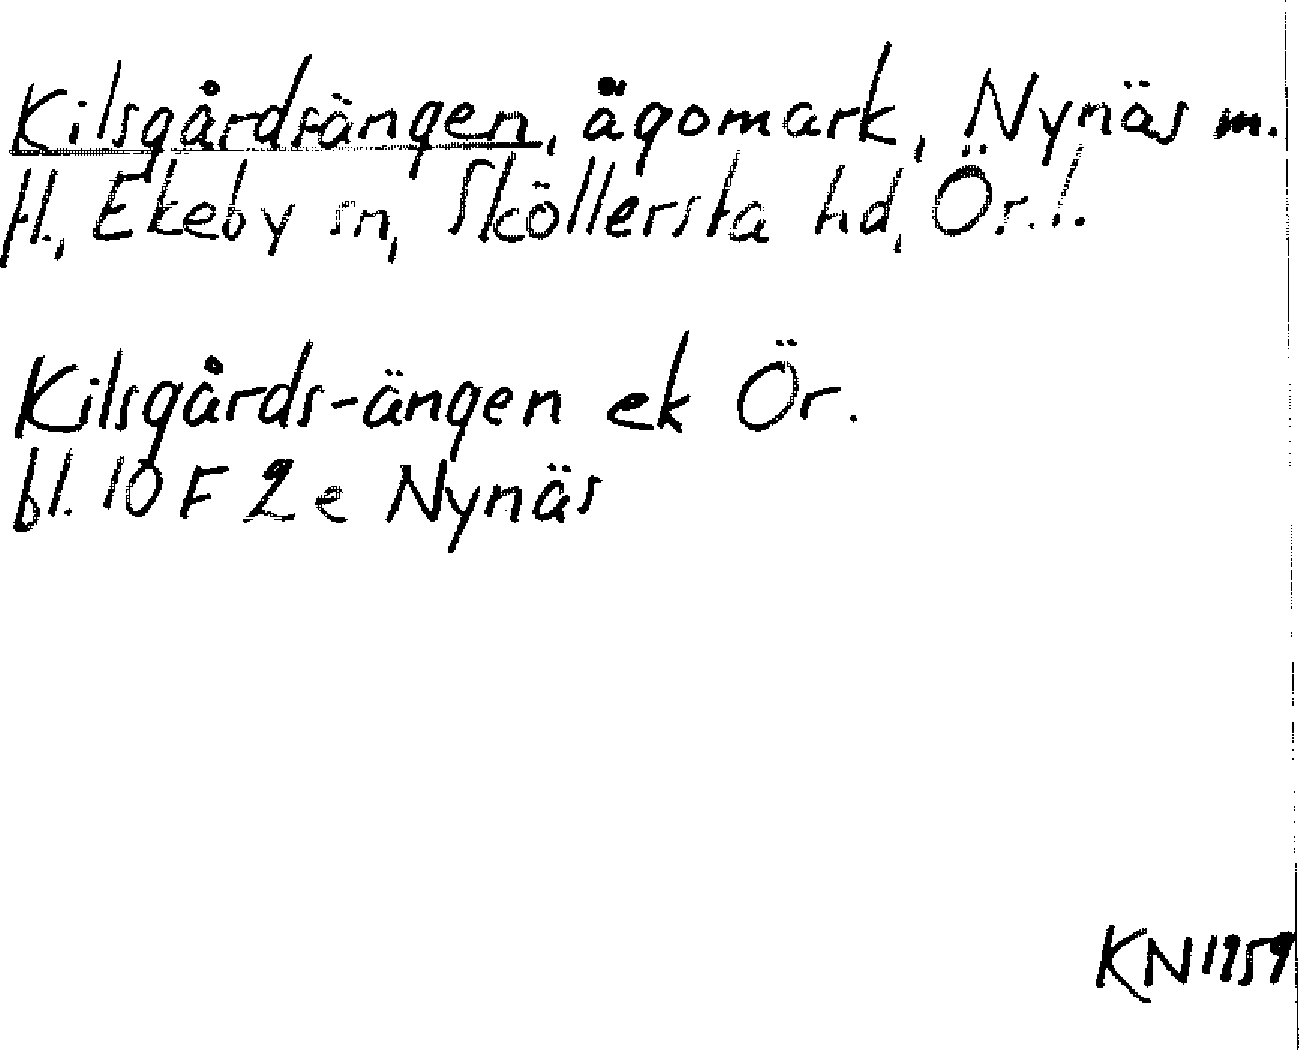 Kilsgårdsängen, ägomark, Nynäs m.
fl., Ekeby sn, Sköllersta hd, Ör.l.
Kilsgårds-ängen ek Ör.
bl. 10 F 2 e Nynäs
KN 1959